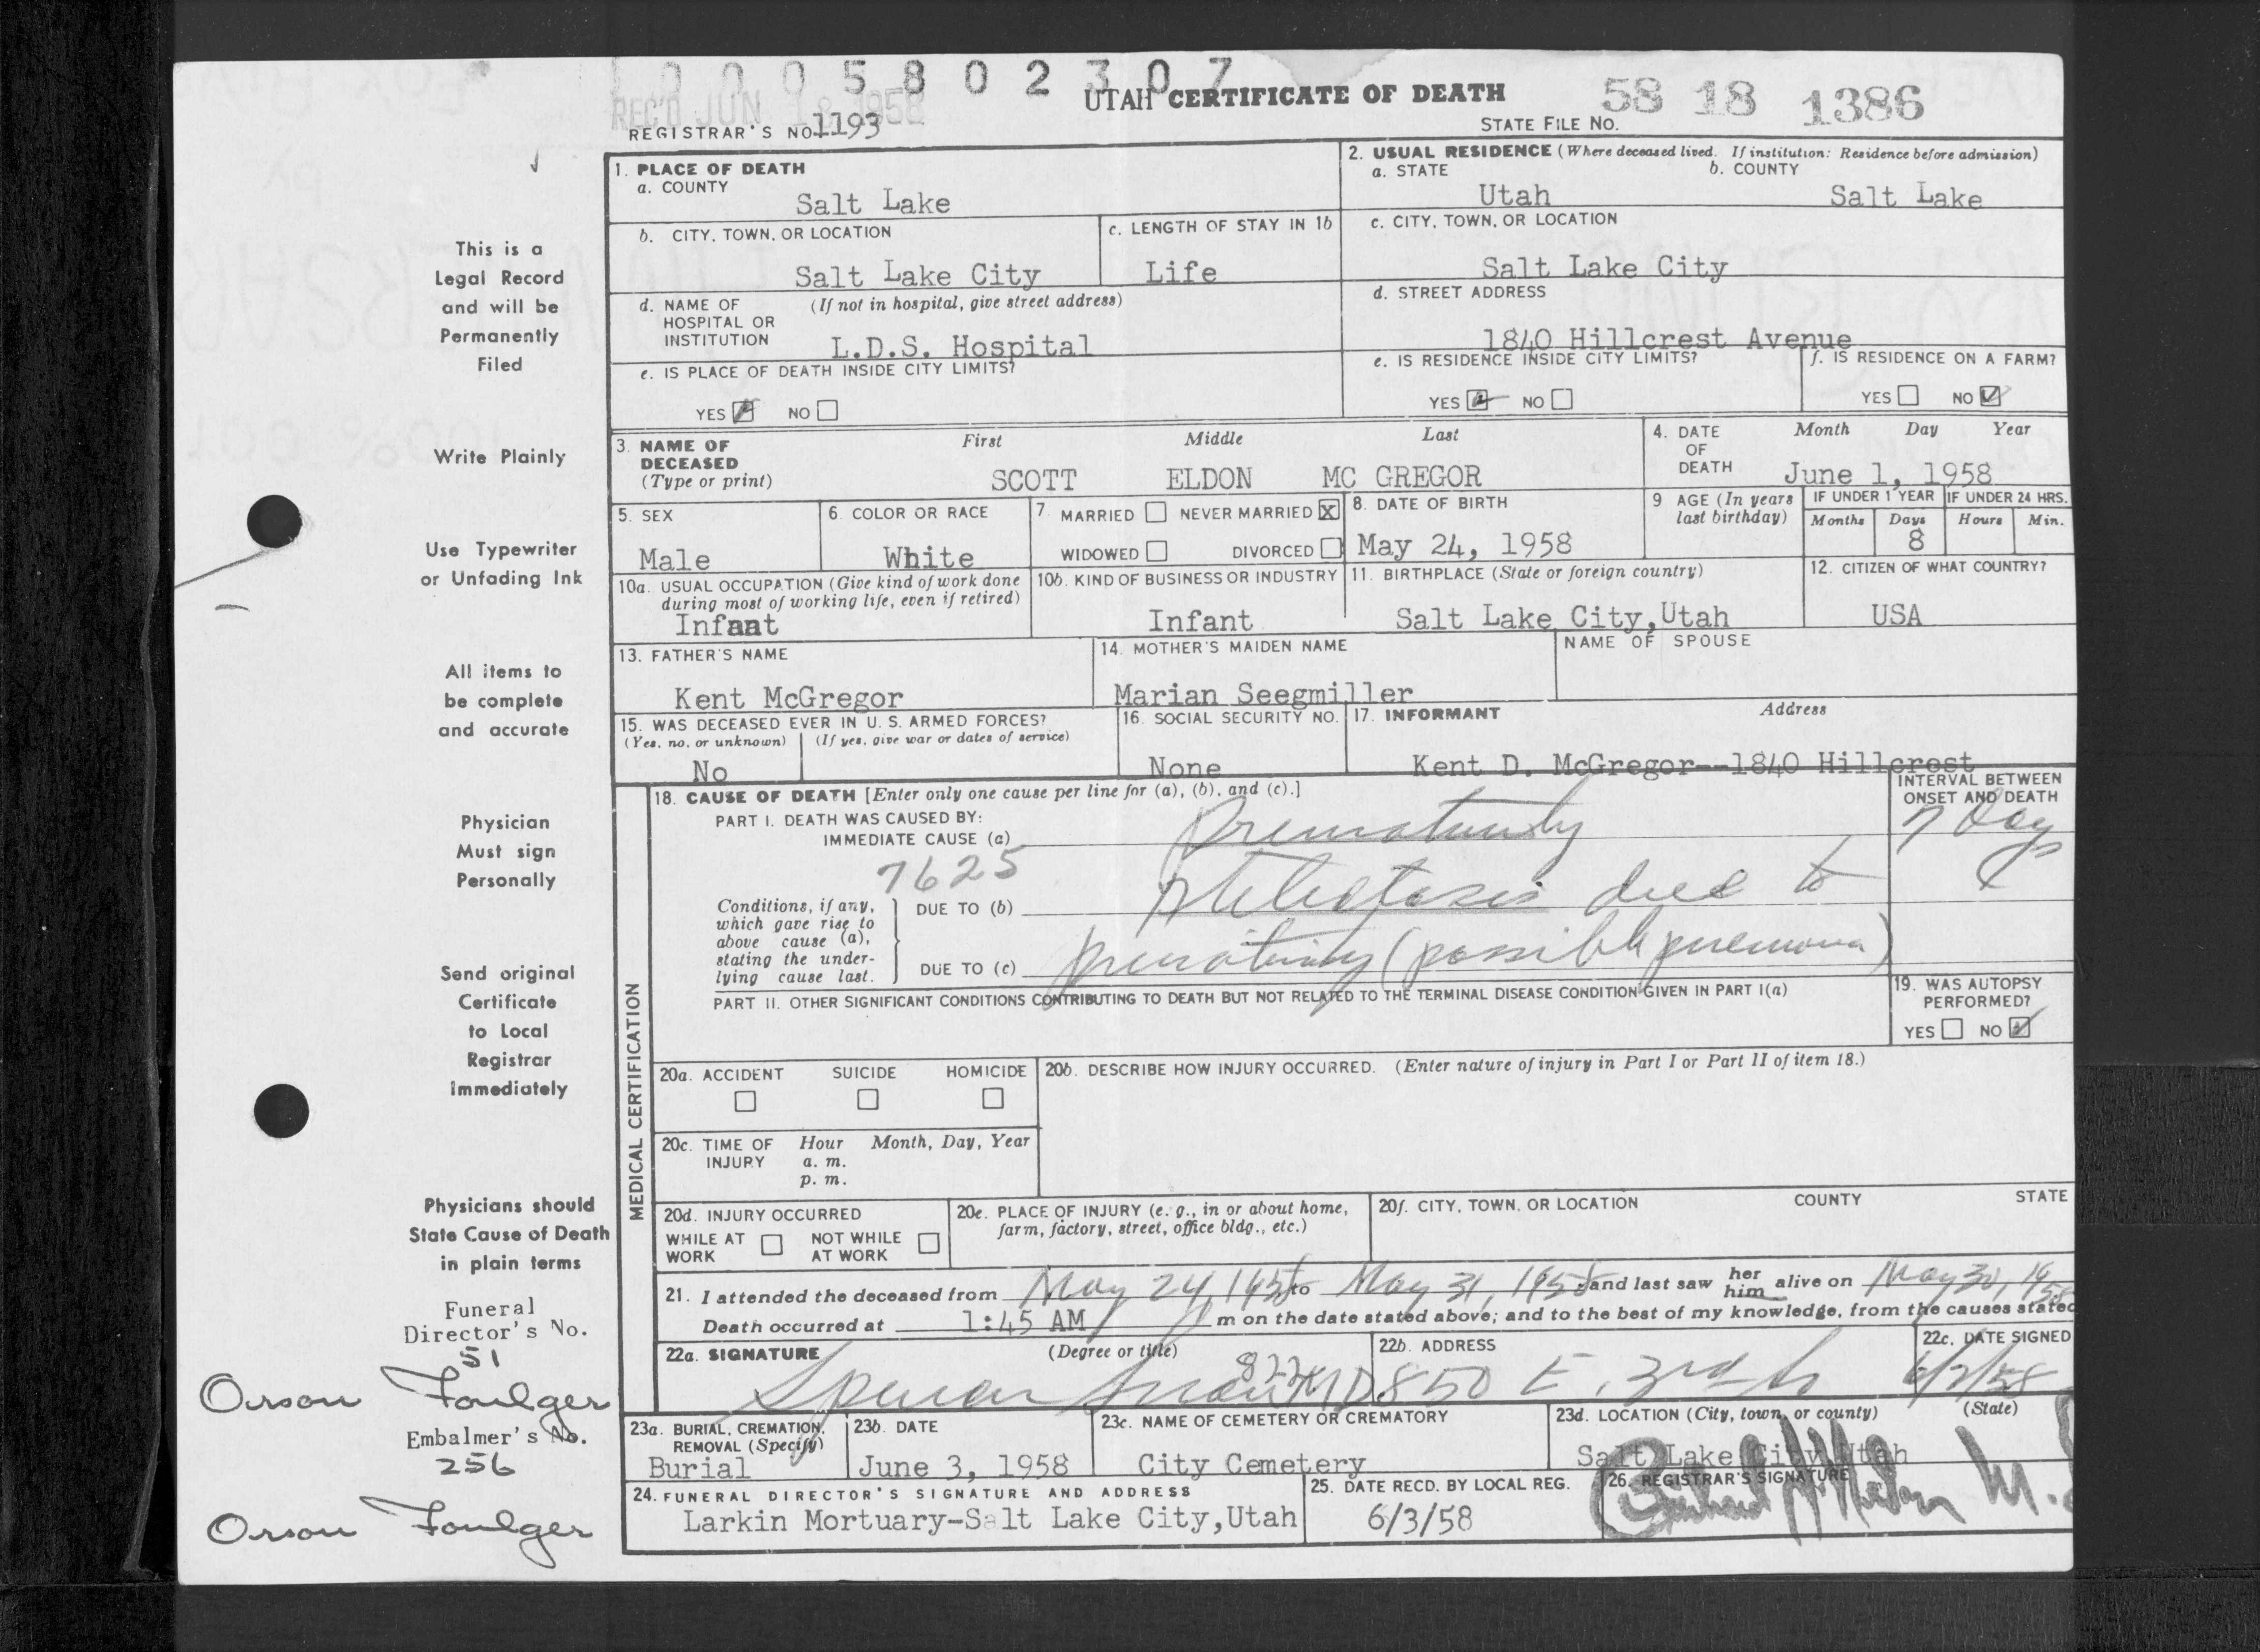 1 0 0 0 5 8 0 2 3 0 7
REC'D JUN 18 1958
UTAH CERTIFICATE OF DEATH
58 18 1386
REGISTRAR'S NO. 1193
STATE FILE NO.
1. PLACE OF DEATH
a. COUNTY
Salt Lake
2. USUAL RESIDENCE (Where deceased lived. If institution: Residence before admission)
a. STATE b. COUNTY
Utah Salt Lake
b. CITY, TOWN, OR LOCATION
Salt Lake City
c. LENGTH OF STAY IN 1b
Life
c. CITY, TOWN, OR LOCATION
Salt Lake City
d. NAME OF (If not in hospital, give street address)
HOSPITAL OR
INSTITUTION
L.D.S. Hospital
d. STREET ADDRESS
1840 Hillcrest Avenue
e. IS PLACE OF DEATH INSIDE CITY LIMITS?
YES NO
e. IS RESIDENCE INSIDE CITY LIMITS?
YES NO
f. IS RESIDENCE ON A FARM?
YES NO
3. NAME OF
DECEASED
(Type or print)
First Middle Last
SCOTT ELDON MC GREGOR
4. DATE
OF
DEATH
Month Day Year
June 1, 1958
5. SEX
Male
6. COLOR OR RACE
White
7. MARRIED NEVER MARRIED X
WIDOWED DIVORCED
8. DATE OF BIRTH
May 24, 1958
9 AGE (In years
last birthday)
IF UNDER 1 YEAR
Months Days
8
IF UNDER 24 HRS.
Hours Min.
10a. USUAL OCCUPATION (Give kind of work done
during most of working life, even if retired)
Infaat
10b. KIND OF BUSINESS OR INDUSTRY
Infant
11. BIRTHPLACE (State or foreign country)
Salt Lake City,Utah
12. CITIZEN OF WHAT COUNTRY?
USA
13. FATHER'S NAME
Kent McGregor
14. MOTHER'S MAIDEN NAME
Marian Seegmiller
NAME OF SPOUSE
15. WAS DECEASED EVER IN U. S. ARMED FORCES?
(Yes, no, or unknown) (If yes, give war or dates of service)
No
16. SOCIAL SECURITY NO.
None
17. INFORMANT Address
Kent D. McGregor--1840 Hillcrest
MEDICAL CERTIFICATION
18. CAUSE OF DEATH [Enter only one cause per line for (a), (b), and (c).]
INTERVAL BETWEEN
ONSET AND DEATH
PART I. DEATH WAS CAUSED BY:
IMMEDIATE CAUSE (a) Prematurity 7 day
7625
Conditions, if any,
which gave rise to
above cause (a),
stating the under-
lying cause last.
DUE TO (b) Atelectasis due to
DUE TO (c) prematurity (possible pneumonia)
PART II. OTHER SIGNIFICANT CONDITIONS CONTRIBUTING TO DEATH BUT NOT RELATED TO THE TERMINAL DISEASE CONDITION GIVEN IN PART I(a)
19. WAS AUTOPSY
PERFORMED?
YES NO
20a. ACCIDENT SUICIDE HOMICIDE
20b. DESCRIBE HOW INJURY OCCURRED. (Enter nature of injury in Part I or Part II of item 18.)
20c. TIME OF Hour Month, Day, Year
INJURY a. m.
p. m.
20d. INJURY OCCURRED
WHILE AT NOT WHILE
WORK AT WORK
20e. PLACE OF INJURY (e. g., in or about home,
farm, factory, street, office bldg., etc.)
20f. CITY, TOWN, OR LOCATION COUNTY STATE
21. I attended the deceased from May 24, 1958 to May 31, 1958 and last saw her him alive on May 30, 1958
Death occurred at 1:45 AM m on the date stated above; and to the best of my knowledge, from the causes stated
22a. SIGNATURE (Degree or title)
Spencer MD
22b. ADDRESS
850 E. 3rd So
22c. DATE SIGNED
6/2/58
23a. BURIAL, CREMATION,
REMOVAL (Specify)
Burial
23b. DATE
June 3, 1958
23c. NAME OF CEMETERY OR CREMATORY
City Cemetery
23d. LOCATION (City, town, or county) (State)
Salt Lake City Utah
24. FUNERAL DIRECTOR'S SIGNATURE AND ADDRESS
Larkin Mortuary-Salt Lake City,Utah
25. DATE RECD. BY LOCAL REG.
6/3/58
26. REGISTRAR'S SIGNATURE
This is a
Legal Record
and will be
Permanently
Filed
Write Plainly
Use Typewriter
or Unfading Ink
All items to
be complete
and accurate
Physician
Must sign
Personally
Send original
Certificate
to Local
Registrar
immediately
Physicians should
State Cause of Death
in plain terms
Funeral
Director's No.
51
Orson Foulger
Embalmer's No.
256
Orson Foulger